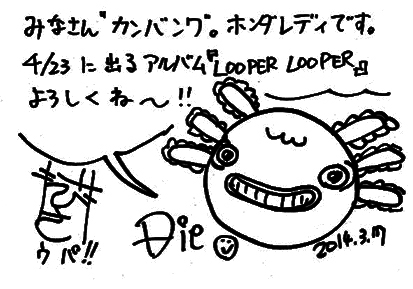 みなさん゛カンバンワ゛。ホンダレディです。
4/23に出るアルバム『LOOPER LOOPER』
よろしくね〜!!
ウパ!!
Die
2014.3.17